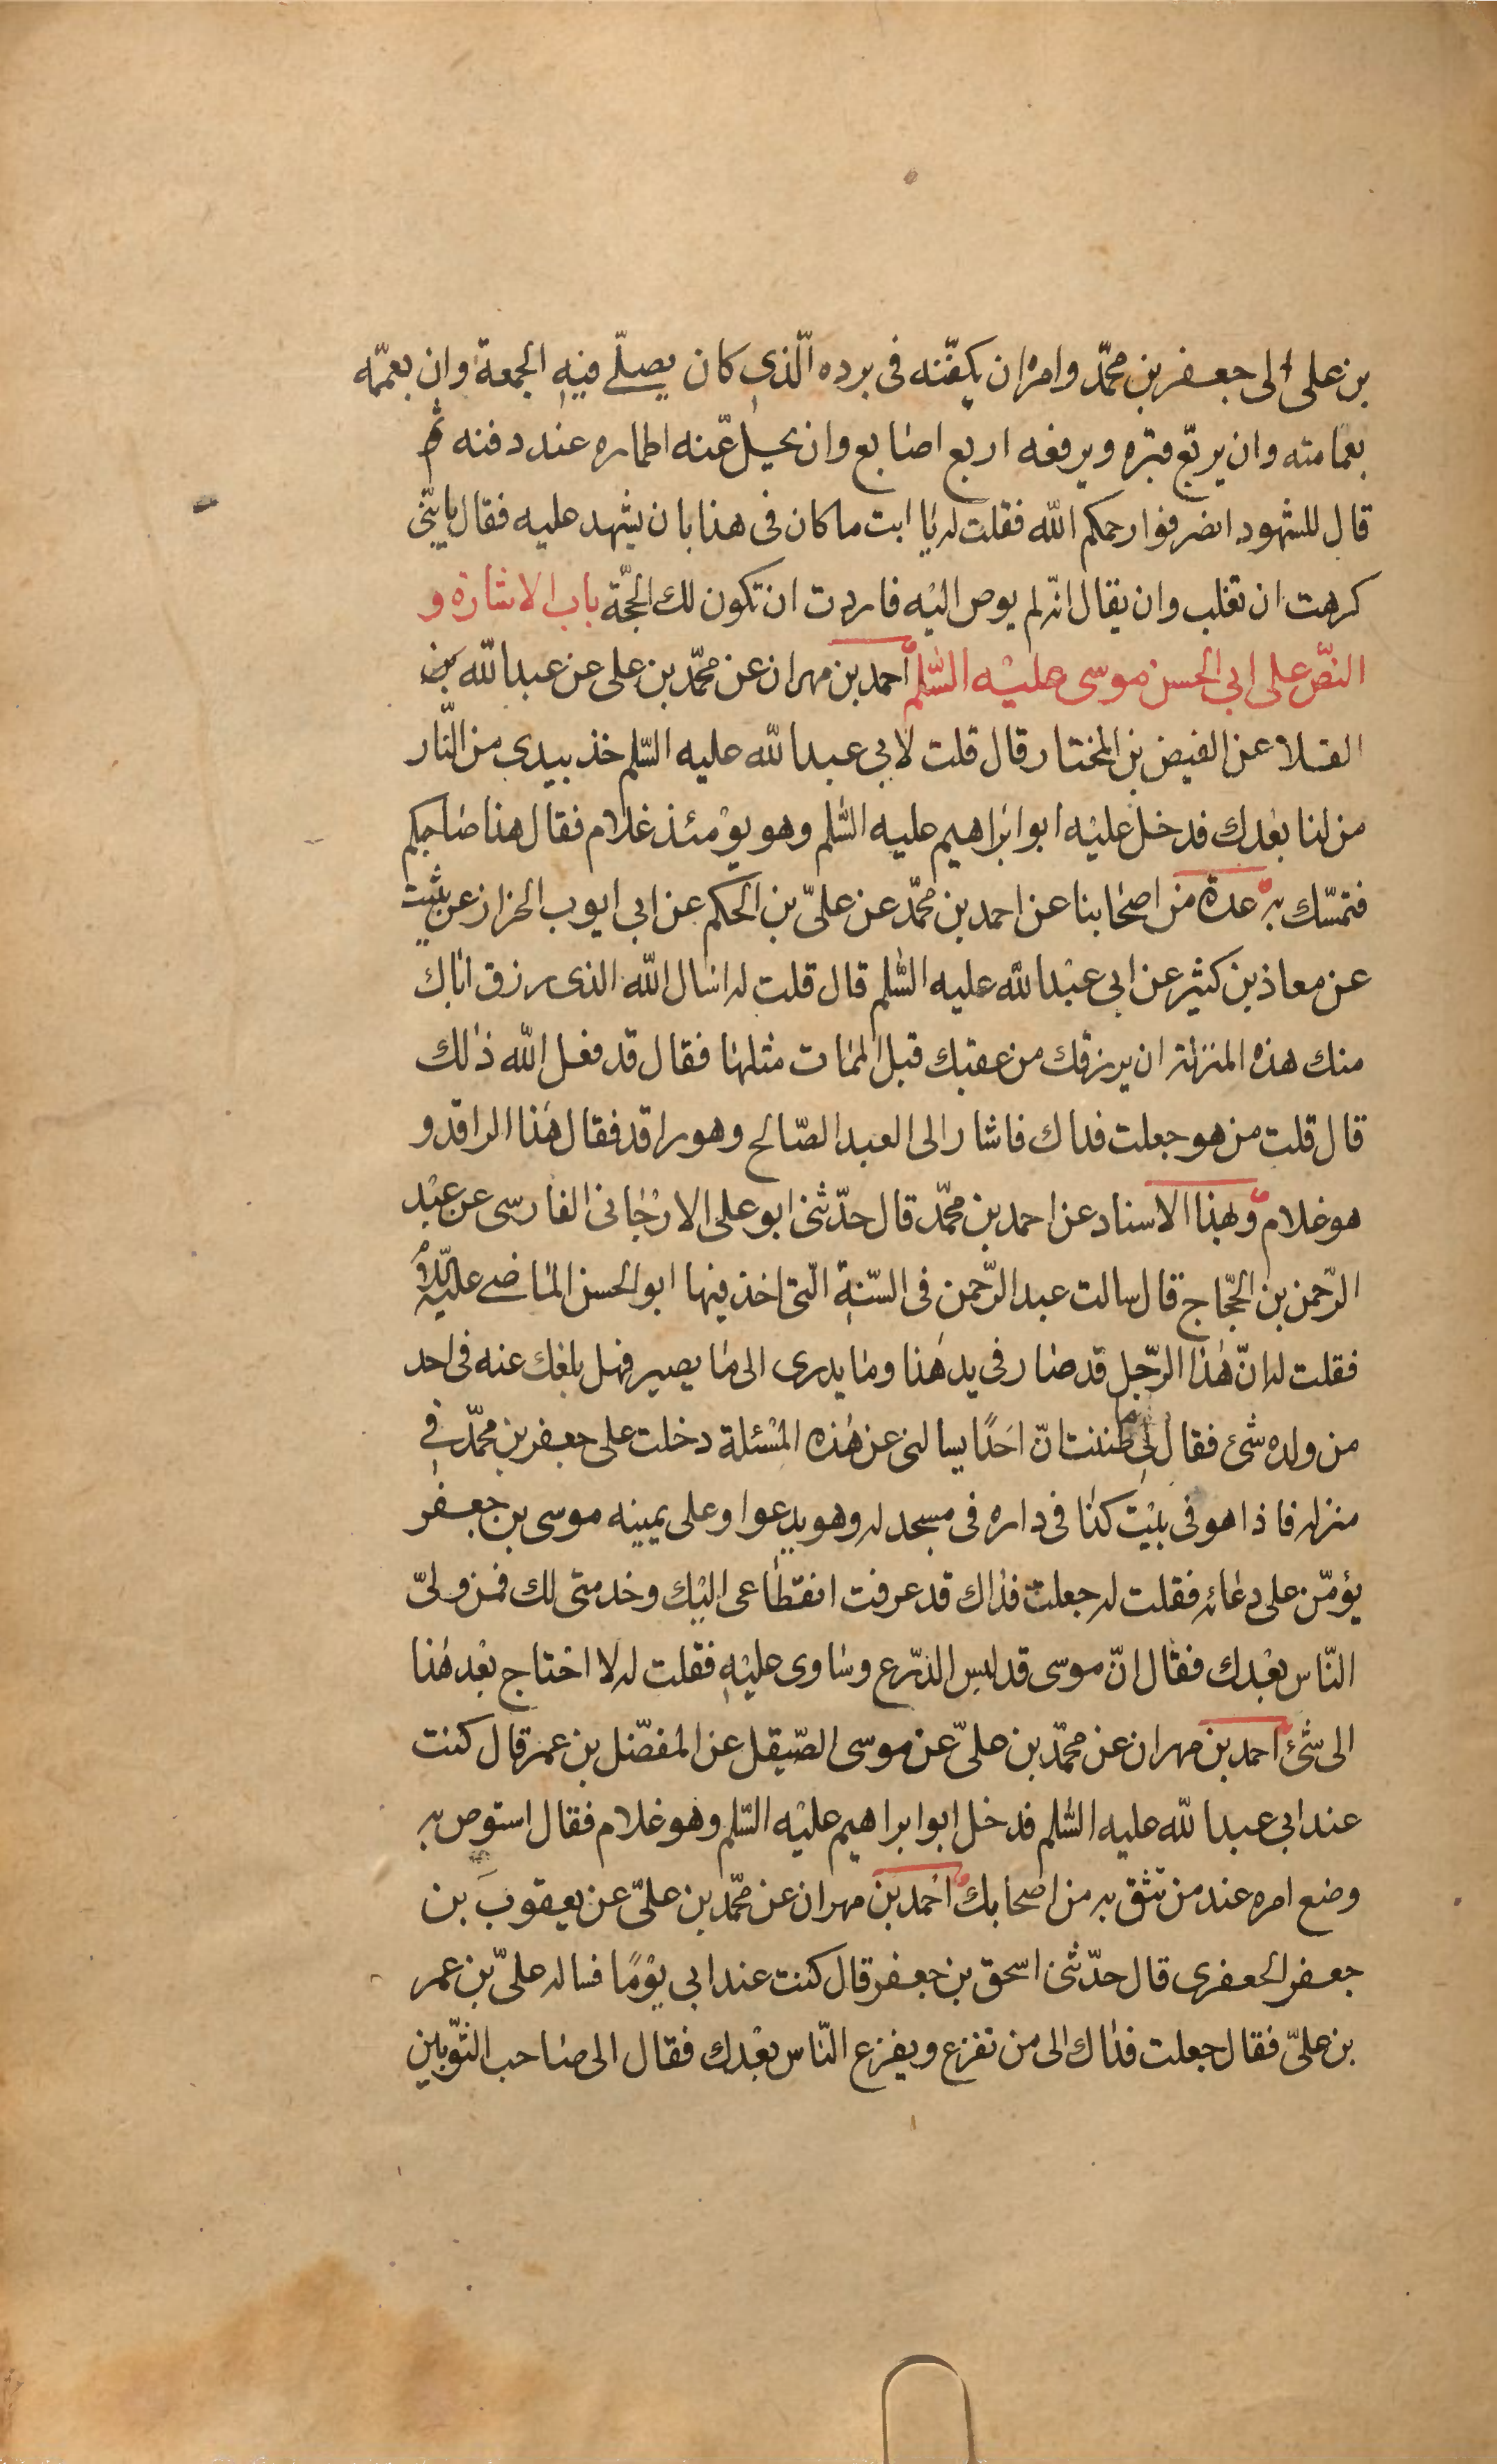 بن على الى جعفر بن محمّد وامره ان يكفّنه فى برده الّذى كان يصلّے فيه الجمعة وان يعمّمه
بعمامته وان يربّع قبره ويرفعه اربع اصابع وان يحل عنه اطماره عند دفنه ثم
قال للشهود انصرفوا رحمكم اللّه فقلت له يا ابت ما كان فى هذا بان يشهد عليه فقال يا بنّى
كرهت ان تغلب وان يقال انّه لم يوص اليه فاردت ان تكون لك الحجّة باب الاشارة و
النّص على ابى الحسن موسى عليه السّلم احمد بن مهران عن محمّد بن على عن عبد اللّه بن
القلا عن الفيض بن المختار قال قلت لابى عبد اللّه عليه السّلم خذ بيدى من النّار
من لنا بعدك فدخل عليه ابو ابراهيم عليه السّلم وهو يومئذ غلام فقال هذا صاحبكم
فتمسّك به عدة من اصحابنا عن احمد بن محمّد عن علىّ بن الحكم عن ابى ايوب الخزاز عن ثبيت
عن معاذ بن كثير عن ابى عبد اللّه عليه السّلم قال قلت له اسال اللّه الذى رزق اباك
منك هذه المنزلة ان يرزقك من عقبك قبل الممات مثلها فقال قد فعل اللّه ذلك
قال قلت من هو جعلت فداك فاشار الى العبد الصّالح وهو راقد فقال هذا الراقد و
هو غلام وبهذا الاسناد عن احمد بن محمّد قال حدّثنى ابو على الارجانى الفارسى عن عبد
الرّحمن بن الحجّاج قال سالت عبد الرّحمن فى السّنة الّتى اخذ فيها ابو الحسن الماضے عليه السلم
فقلت له انّ هذا الرّجل قد صار فى يد هذا وما يدرى الى ما يصير فهل بلغك عنه فى احد
من ولده شئ فقال لى ما ظننت انّ احدًا يسالنى عن هذه المسئلة دخلت على جعفر بن محمّد فى
منزله فاذا هو فى بيت كذا فى داره فى مسجد له وهو يدعوا وعلى يمينه موسى بن جعفر
يؤمّن على دعائه فقلت له جعلت فداك قد عرفت انقطاعى اليك وخدمتى لك فمن ولىّ
النّاس بعدك فقال انّ موسى قد لبس الدّرع وساوى عليه فقلت له لا احتاج بعد هذا
الى شئ احمد بن مهران عن محمّد بن علىّ عن موسى الصّيقل عن المفضّل بن عمر قال كنت
عند ابى عبد اللّه عليه السّلم فدخل ابو ابراهيم عليه السّلم وهو غلام فقال استوص به
وضع امره عند من تثق به من اصحابك احمد بن مهران عن محمّد بن علىّ عن يعقوب بن
جعفر الجعفرى قال حدّثنى اسحق بن جعفر قال كنت عند ابى يومًا فساله علىّ بن عمر
بن علىّ فقال جعلت فداك الى من نفزع ويفزع النّاس بعدك فقال الى صاحب الثّوبين